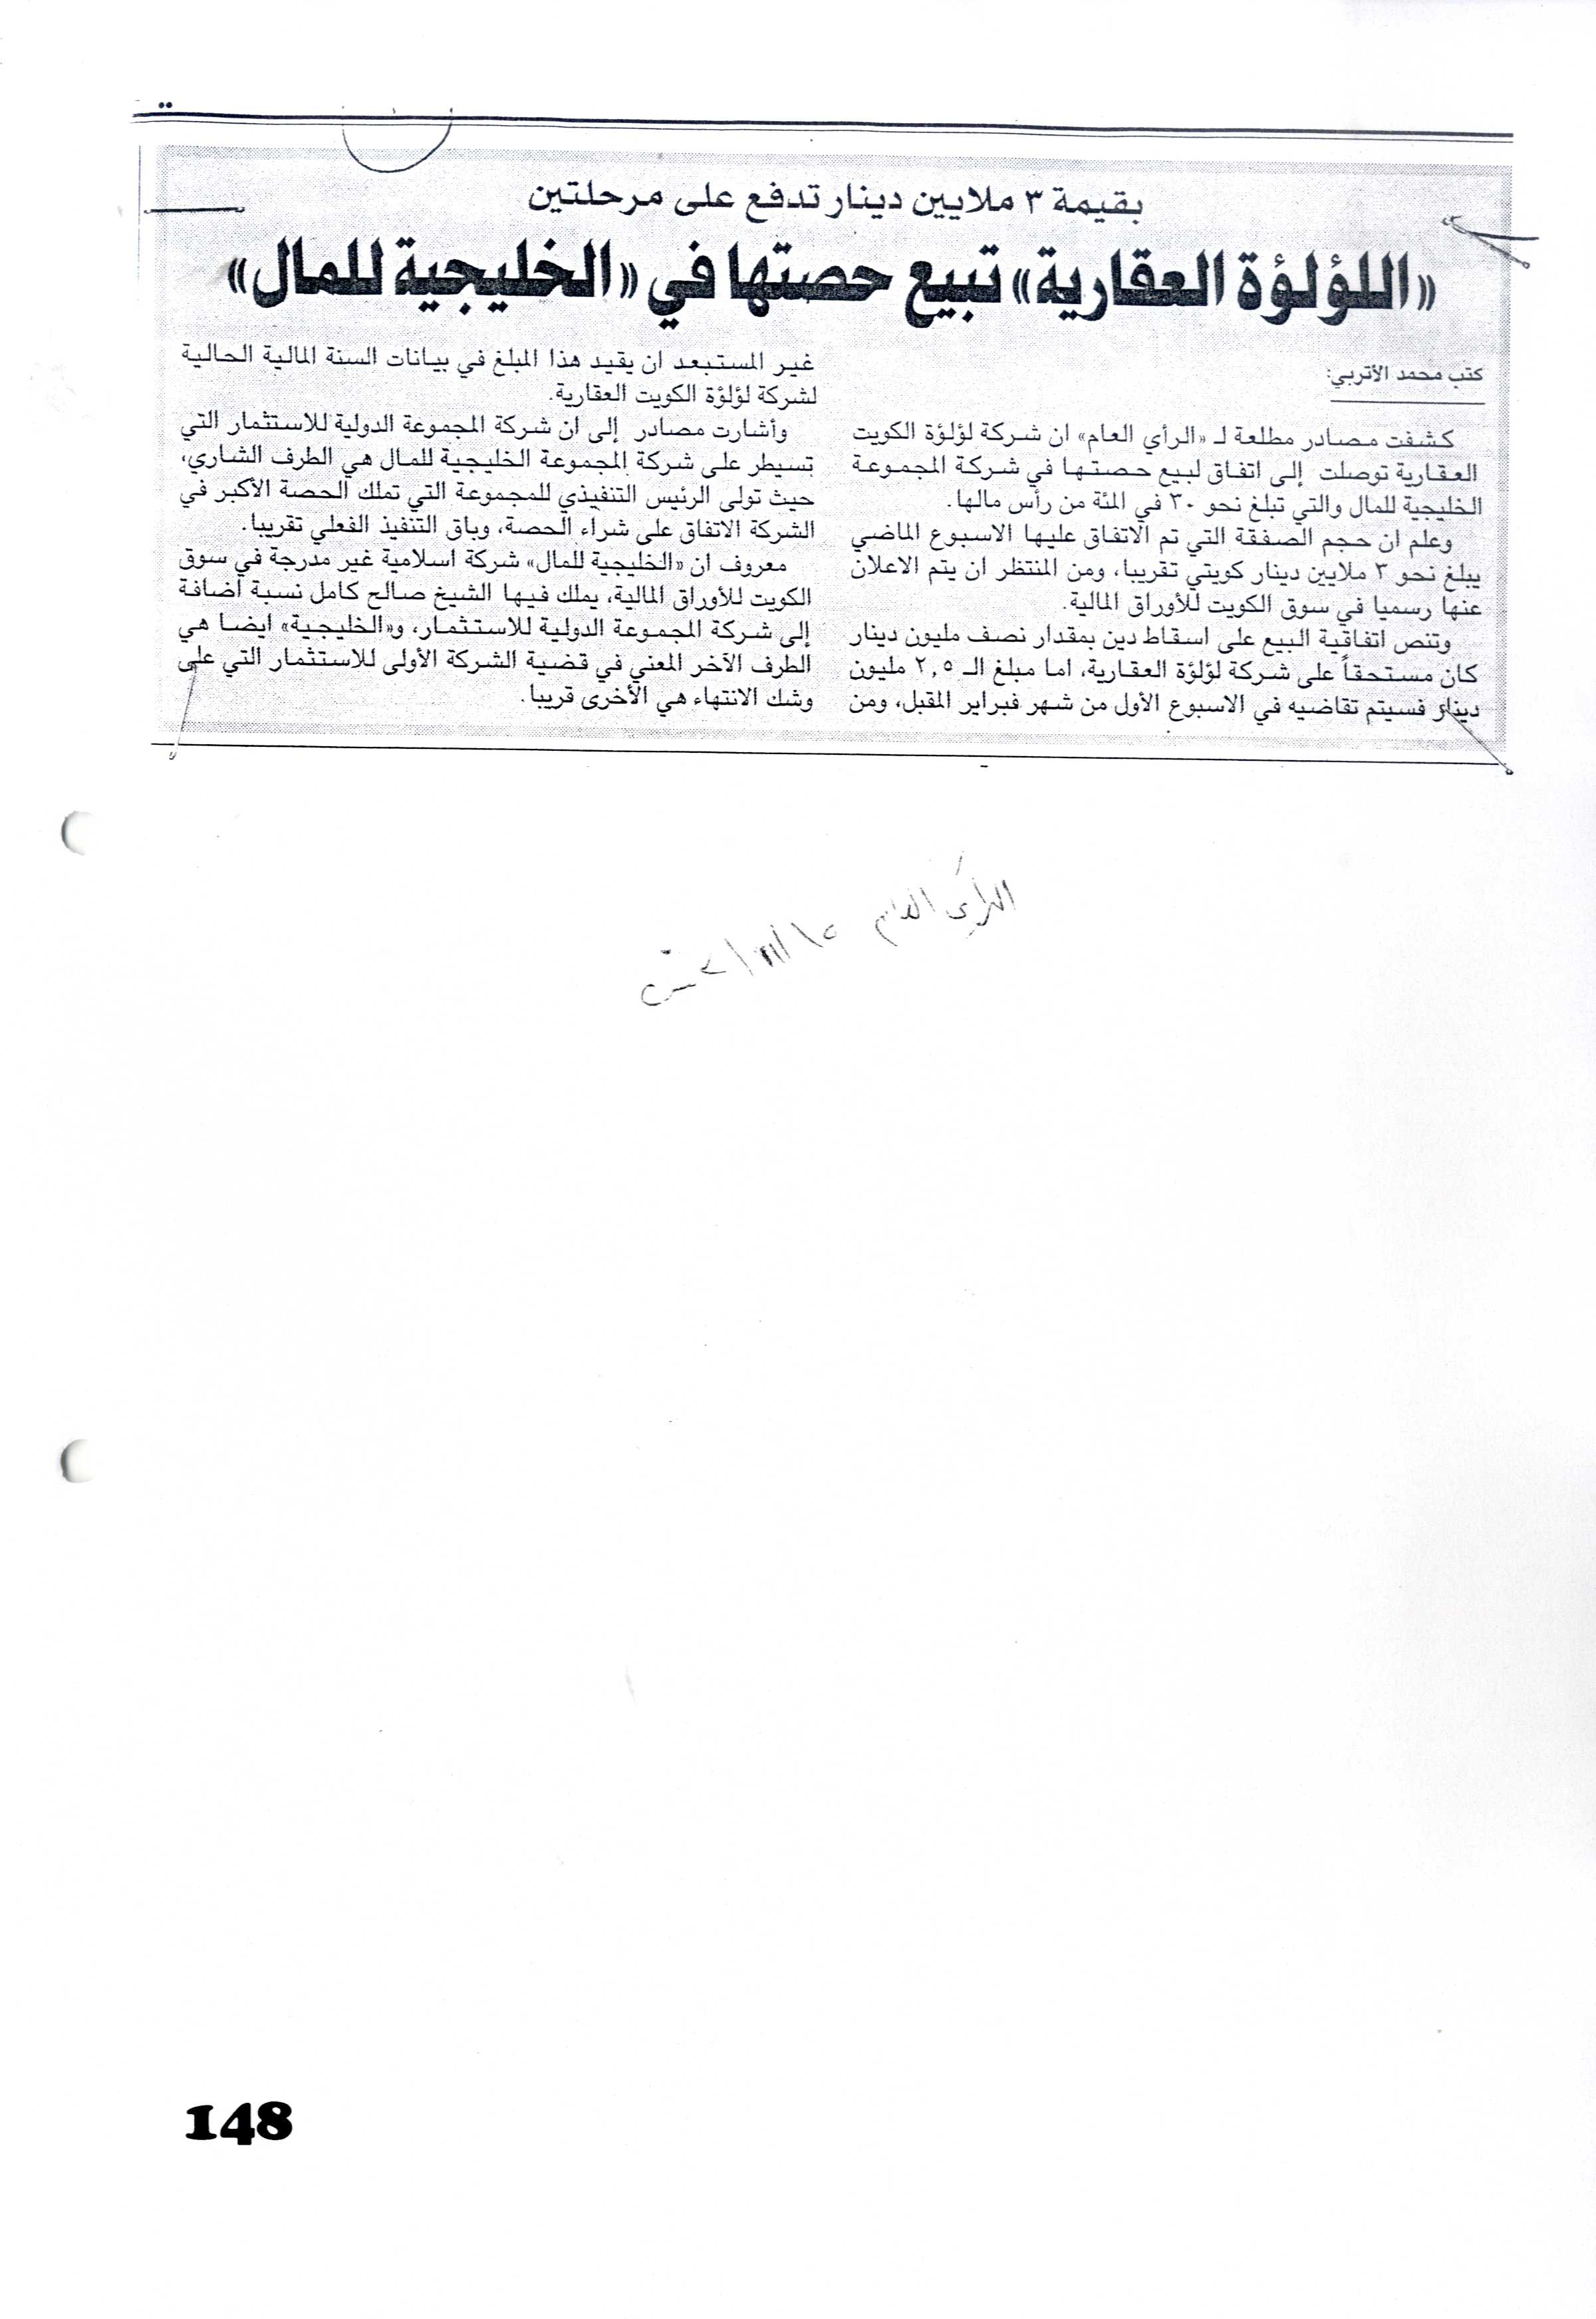 بقيمة ٣ ملايين دينار تدفع على مرحلتين
«اللؤلؤة العقارية» تبيع حصتها في «الخليجية للمال»
كتب محمد الأتربي:
كشفت مصادر مطلعة لـ «الرأي العام» ان شركة لؤلؤة الكويت
العقارية توصلت إلى اتفاق لبيع حصتها في شركة المجموعة
الخليجية للمال والتي تبلغ نحو ٣٠ في المئة من رأس مالها.
وعلم ان حجم الصفقة التي تم الاتفاق عليها الاسبوع الماضي
يبلغ نحو ٣ ملايين دينار كويتي تقريبا، ومن المنتظر ان يتم الاعلان
عنها رسميا في سوق الكويت للأوراق المالية.
وتنص اتفاقية البيع على اسقاط دين بمقدار نصف مليون دينار
كان مستحقاً على شركة لؤلؤة العقارية، اما مبلغ الـ ٢,٥ مليون
دينار فسيتم تقاضيه في الاسبوع الأول من شهر فبراير المقبل، ومن
غير المستبعد ان يقيد هذا المبلغ في بيانات السنة المالية الحالية
لشركة لؤلؤة الكويت العقارية.
وأشارت مصادر إلى ان شركة المجموعة الدولية للاستثمار التي
تسيطر على شركة المجموعة الخليجية للمال هي الطرف الشاري،
حيث تولى الرئيس التنفيذي للمجموعة التي تملك الحصة الأكبر في
الشركة الاتفاق على شراء الحصة، وباق التنفيذ الفعلي تقريبا.
معروف ان «الخليجية للمال» شركة اسلامية غير مدرجة في سوق
الكويت للأوراق المالية، يملك فيها الشيخ صالح كامل نسبة اضافة
إلى شركة المجموعة الدولية للاستثمار، و«الخليجية» ايضا هي
الطرف الآخر المعني في قضية الشركة الأولى للاستثمار التي على
وشك الانتهاء هي الأخرى قريبا.
الرأي العام
148